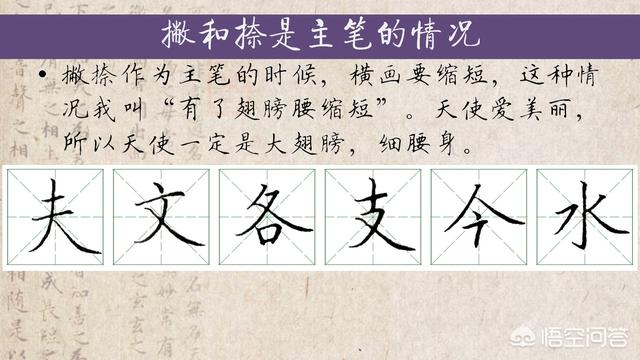 撇和捺是主笔的情况
• 撇捺作为主笔的时候，横画要缩短，这种情
况我叫“有了翅膀腰缩短”。天使爱美丽，
所以天使一定是大翅膀，细腰身。
夫 文 各 支 今 水
悟空问答